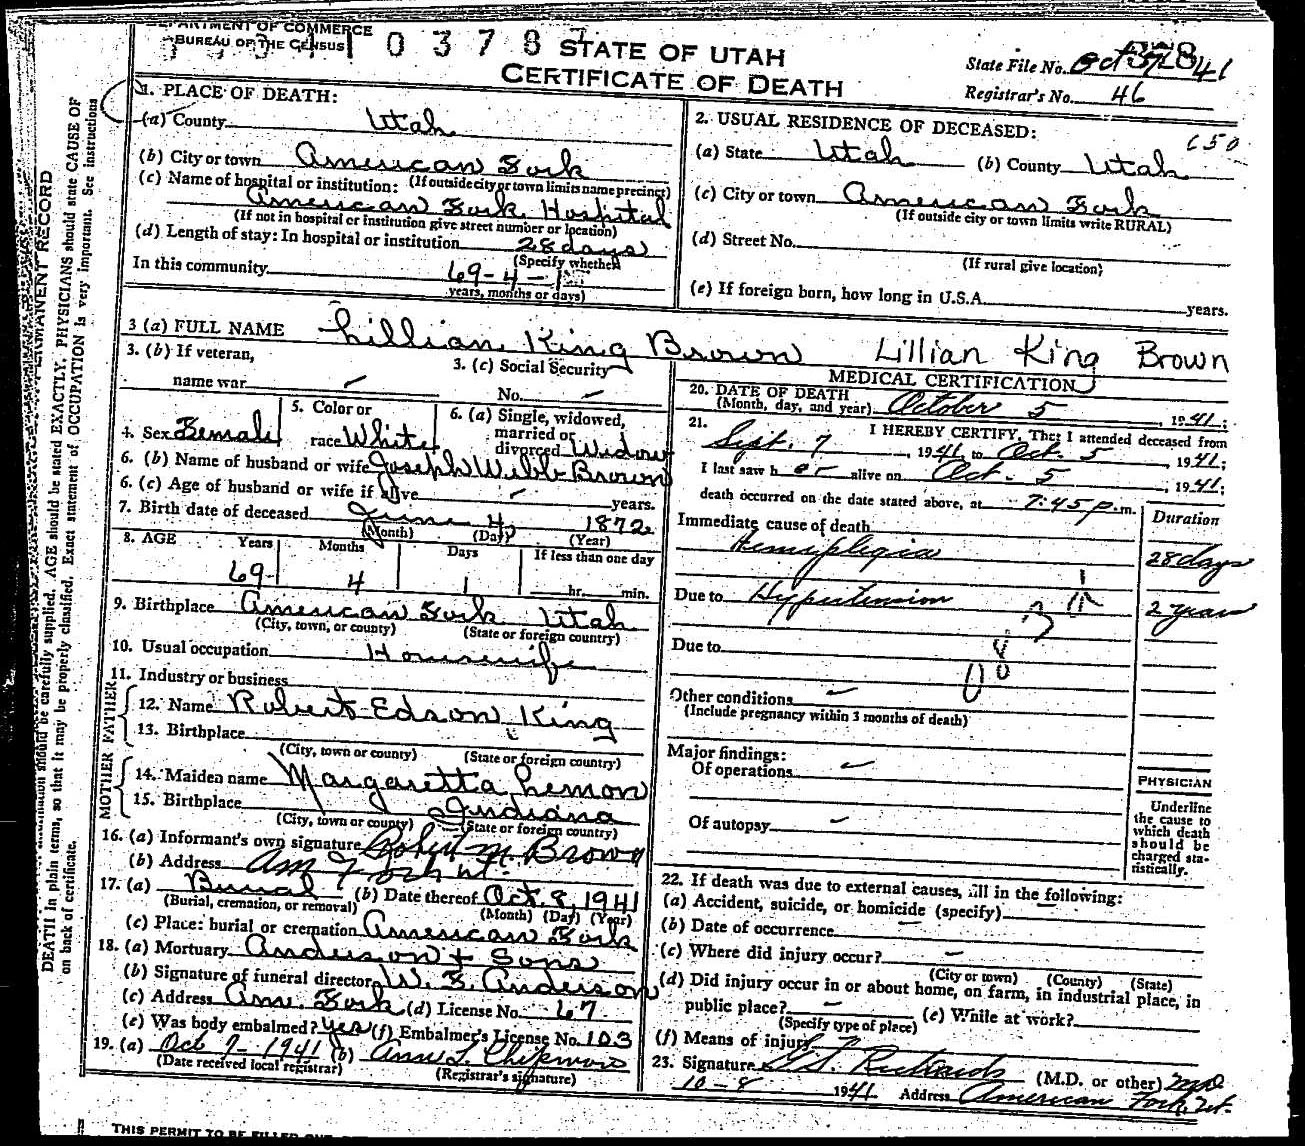 DEPARTMENT OF COMMERCE
BUREAU OF THE CENSUS
STATE OF UTAH
CERTIFICATE OF DEATH
State File No.
Registrar's No. 46
1. PLACE OF DEATH:
(a) County Utah
(b) City or town American Fork
(If outside city or town limits name precinct)
(c) Name of hospital or institution:
American Fork Hospital
(If not in hospital or institution give street number or location)
(d) Length of stay: In hospital or institution 28 days
(Specify whether
In this community 69-4-1
years, months or days)
2. USUAL RESIDENCE OF DECEASED: 650
(a) State Utah (b) County Utah
(c) City or town American Fork
(If outside city or town limits write RURAL)
(d) Street No.
(If rural give location)
(e) If foreign born, how long in U.S.A. years.
3 (a) FULL NAME Lillian King Brown Lillian King Brown
3. (b) If veteran,
name war
3. (c) Social Security
No.
4. Sex Female
5. Color or
race White
6. (a) Single, widowed,
married or
divorced Widow
6. (b) Name of husband or wife Joseph Webb Brown
6. (c) Age of husband or wife if alive years.
7. Birth date of deceased June 4, 1872
(Month) (Day) (Year)
8. AGE Years Months Days If less than one day
69 4 1 hr. min.
9. Birthplace American Fork Utah
(City, town, or county) (State or foreign country)
10. Usual occupation Housewife
11. Industry or business
FATHER
12. Name Robert Edson King
13. Birthplace
(City, town or county) (State or foreign country)
MOTHER
14. Maiden name Margaretta Lemon
15. Birthplace Indiana
(City, town or county) (State or foreign country)
16. (a) Informant's own signature Robert M. Brown
(b) Address Am Fork Ut.
17. (a) Burial (b) Date thereof Oct. 8, 1941
(Burial, cremation, or removal) (Month) (Day) (Year)
(c) Place: burial or cremation American Fork
18. (a) Mortuary Anderson & Sons
(b) Signature of funeral director W. E. Anderson
(c) Address Am. Fork (d) License No. 67
(e) Was body embalmed? yes (f) Embalmer's License No. 103
19. (a) Oct 7-1941 (b)
(Date received local registrar) (Registrar's signature)
MEDICAL CERTIFICATION
20. DATE OF DEATH
(Month, day, and year) October 5, 1941;
21. I HEREBY CERTIFY, That I attended deceased from
Sept. 7, 1941 to Oct. 5, 1941;
I last saw her alive on Oct. 5, 1941;
death occurred on the date stated above, at 7:45 p.m.
Duration
Immediate cause of death
Hemiplegia 28 days
Due to Hypertension 2 years
Due to
Other conditions
(Include pregnancy within 3 months of death)
Major findings:
Of operations
Of autopsy
PHYSICIAN
Underline
the cause to
which death
should be
charged sta-
tistically.
22. If death was due to external causes, fill in the following:
(a) Accident, suicide, or homicide (specify)
(b) Date of occurrence
(c) Where did injury occur?
(City or town) (County) (State)
(d) Did injury occur in or about home, on farm, in industrial place, in
public place? (e) While at work?
(Specify type of place)
(f) Means of injury
23. Signature Richards (M.D. or other) MD
10-8 1941 Address American Fork, Ut.
PERMANENT RECORD
AGE should be stated EXACTLY. PHYSICIANS should state CAUSE OF
DEATH in plain terms, so that it may be properly classified. Exact statement of OCCUPATION is very important. See instructions
on back of certificate.